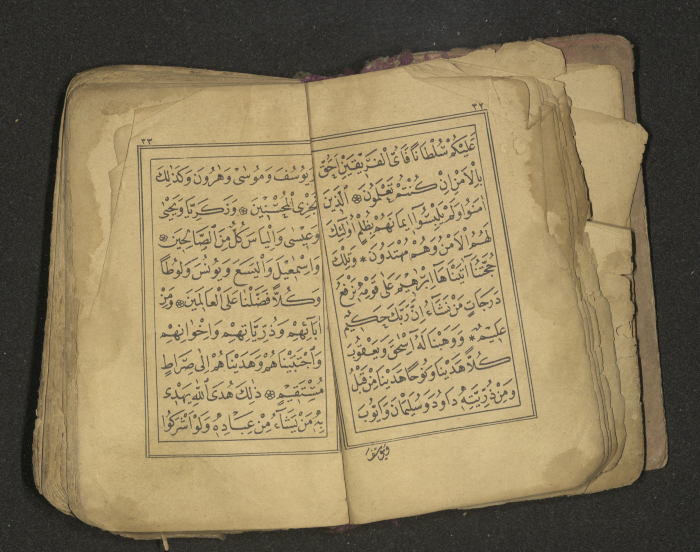 ٣٢
عَلَيْكُمْ سُلْطَانًا فَاَىُّ الْفَرٖيقَيْنِ اَحَقُّ
بِالْاَمْنِ اِنْ كُنْتُمْ تَعْلَمُونَ ۞ اَلَّذٖينَ
اٰمَنُوا وَلَمْ يَلْبِسُوا اٖيمَانَهُمْ بِظُلْمٍ اُولٰٓئِكَ
لَهُمُ الْاَمْنُ وَهُمْ مُهْتَدُونَ ۞ وَتِلْكَ
حُجَّتُنَا اٰتَيْنَاهَا اِبْرٰهٖيمَ عَلٰى قَوْمِهٖ نَرْفَعُ
دَرَجَاتٍ مَنْ نَشَاءُ اِنَّ رَبَّكَ حَكٖيمٌ
عَلٖيمٌ ۞ وَوَهَبْنَا لَهُ اِسْحٰقَ وَيَعْقُوبَ
كُلًّا هَدَيْنَا وَنُوحًا هَدَيْنَا مِنْ قَبْلُ
وَمِنْ ذُرِّيَّتِهٖ دَاوُدَ وَسُلَيْمٰنَ وَاَيُّوبَ
وَيُوسُفَ
٣٣
وَيُوسُفَ وَمُوسٰى وَهٰرُونَ وَكَذٰلِكَ
نَجْزِى الْمُحْسِنٖينَ ۞ وَزَكَرِيَّا وَيَحْيٰى
وَعٖيسٰى وَاِلْيَاسَ كُلٌّ مِنَ الصَّالِحٖينَ ۞
وَاِسْمٰعٖيلَ وَالْيَسَعَ وَيُونُسَ وَلُوطًا
وَكُلًّا فَضَّلْنَا عَلَى الْعَالَمٖينَ ۞ وَمِنْ
اٰبَائِهِمْ وَذُرِّيَّاتِهِمْ وَاِخْوَانِهِمْ
وَاجْتَبَيْنَاهُمْ وَهَدَيْنَاهُمْ اِلٰى صِرَاطٍ
مُسْتَقٖيمٍ ۞ ذٰلِكَ هُدَى اللّٰهِ يَهْدٖى
بِهٖ مَنْ يَشَاءُ مِنْ عِبَادِهٖ وَلَوْ اَشْرَكُوا